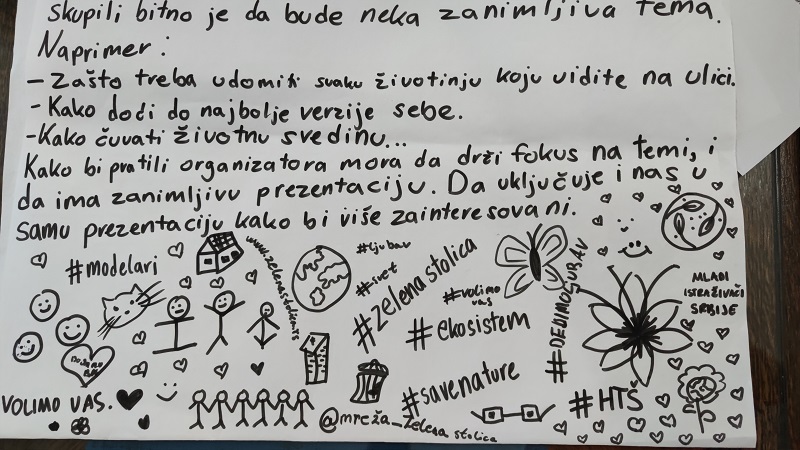 skupili bitno je da bude neka zanimljiva tema.
Naprimer :
- Zašto treba udomiti svaku životinju koju vidite na ulici.
- Kako doći do najbolje verzije sebe.
- Kako čuvati životnu svedinu...
Kako bi pratili organizatora mora da drži fokus na temi, i
da ima zanimljivu prezentaciju. Da uključuje i nas u
samu prezentaciju kako bi više zainteresovani.
#modelari
www.zelenastolica.rs
#ljubav
#svet
#zelena stolica
#volimo
vas
#ekosistem
#DEDIMOLJUBAV
MLADI
ISTRAŽIVAČI
SRBIJE
#savenature
#HTŠ
VOLIMO VAS.
@mreža_zelena stolica